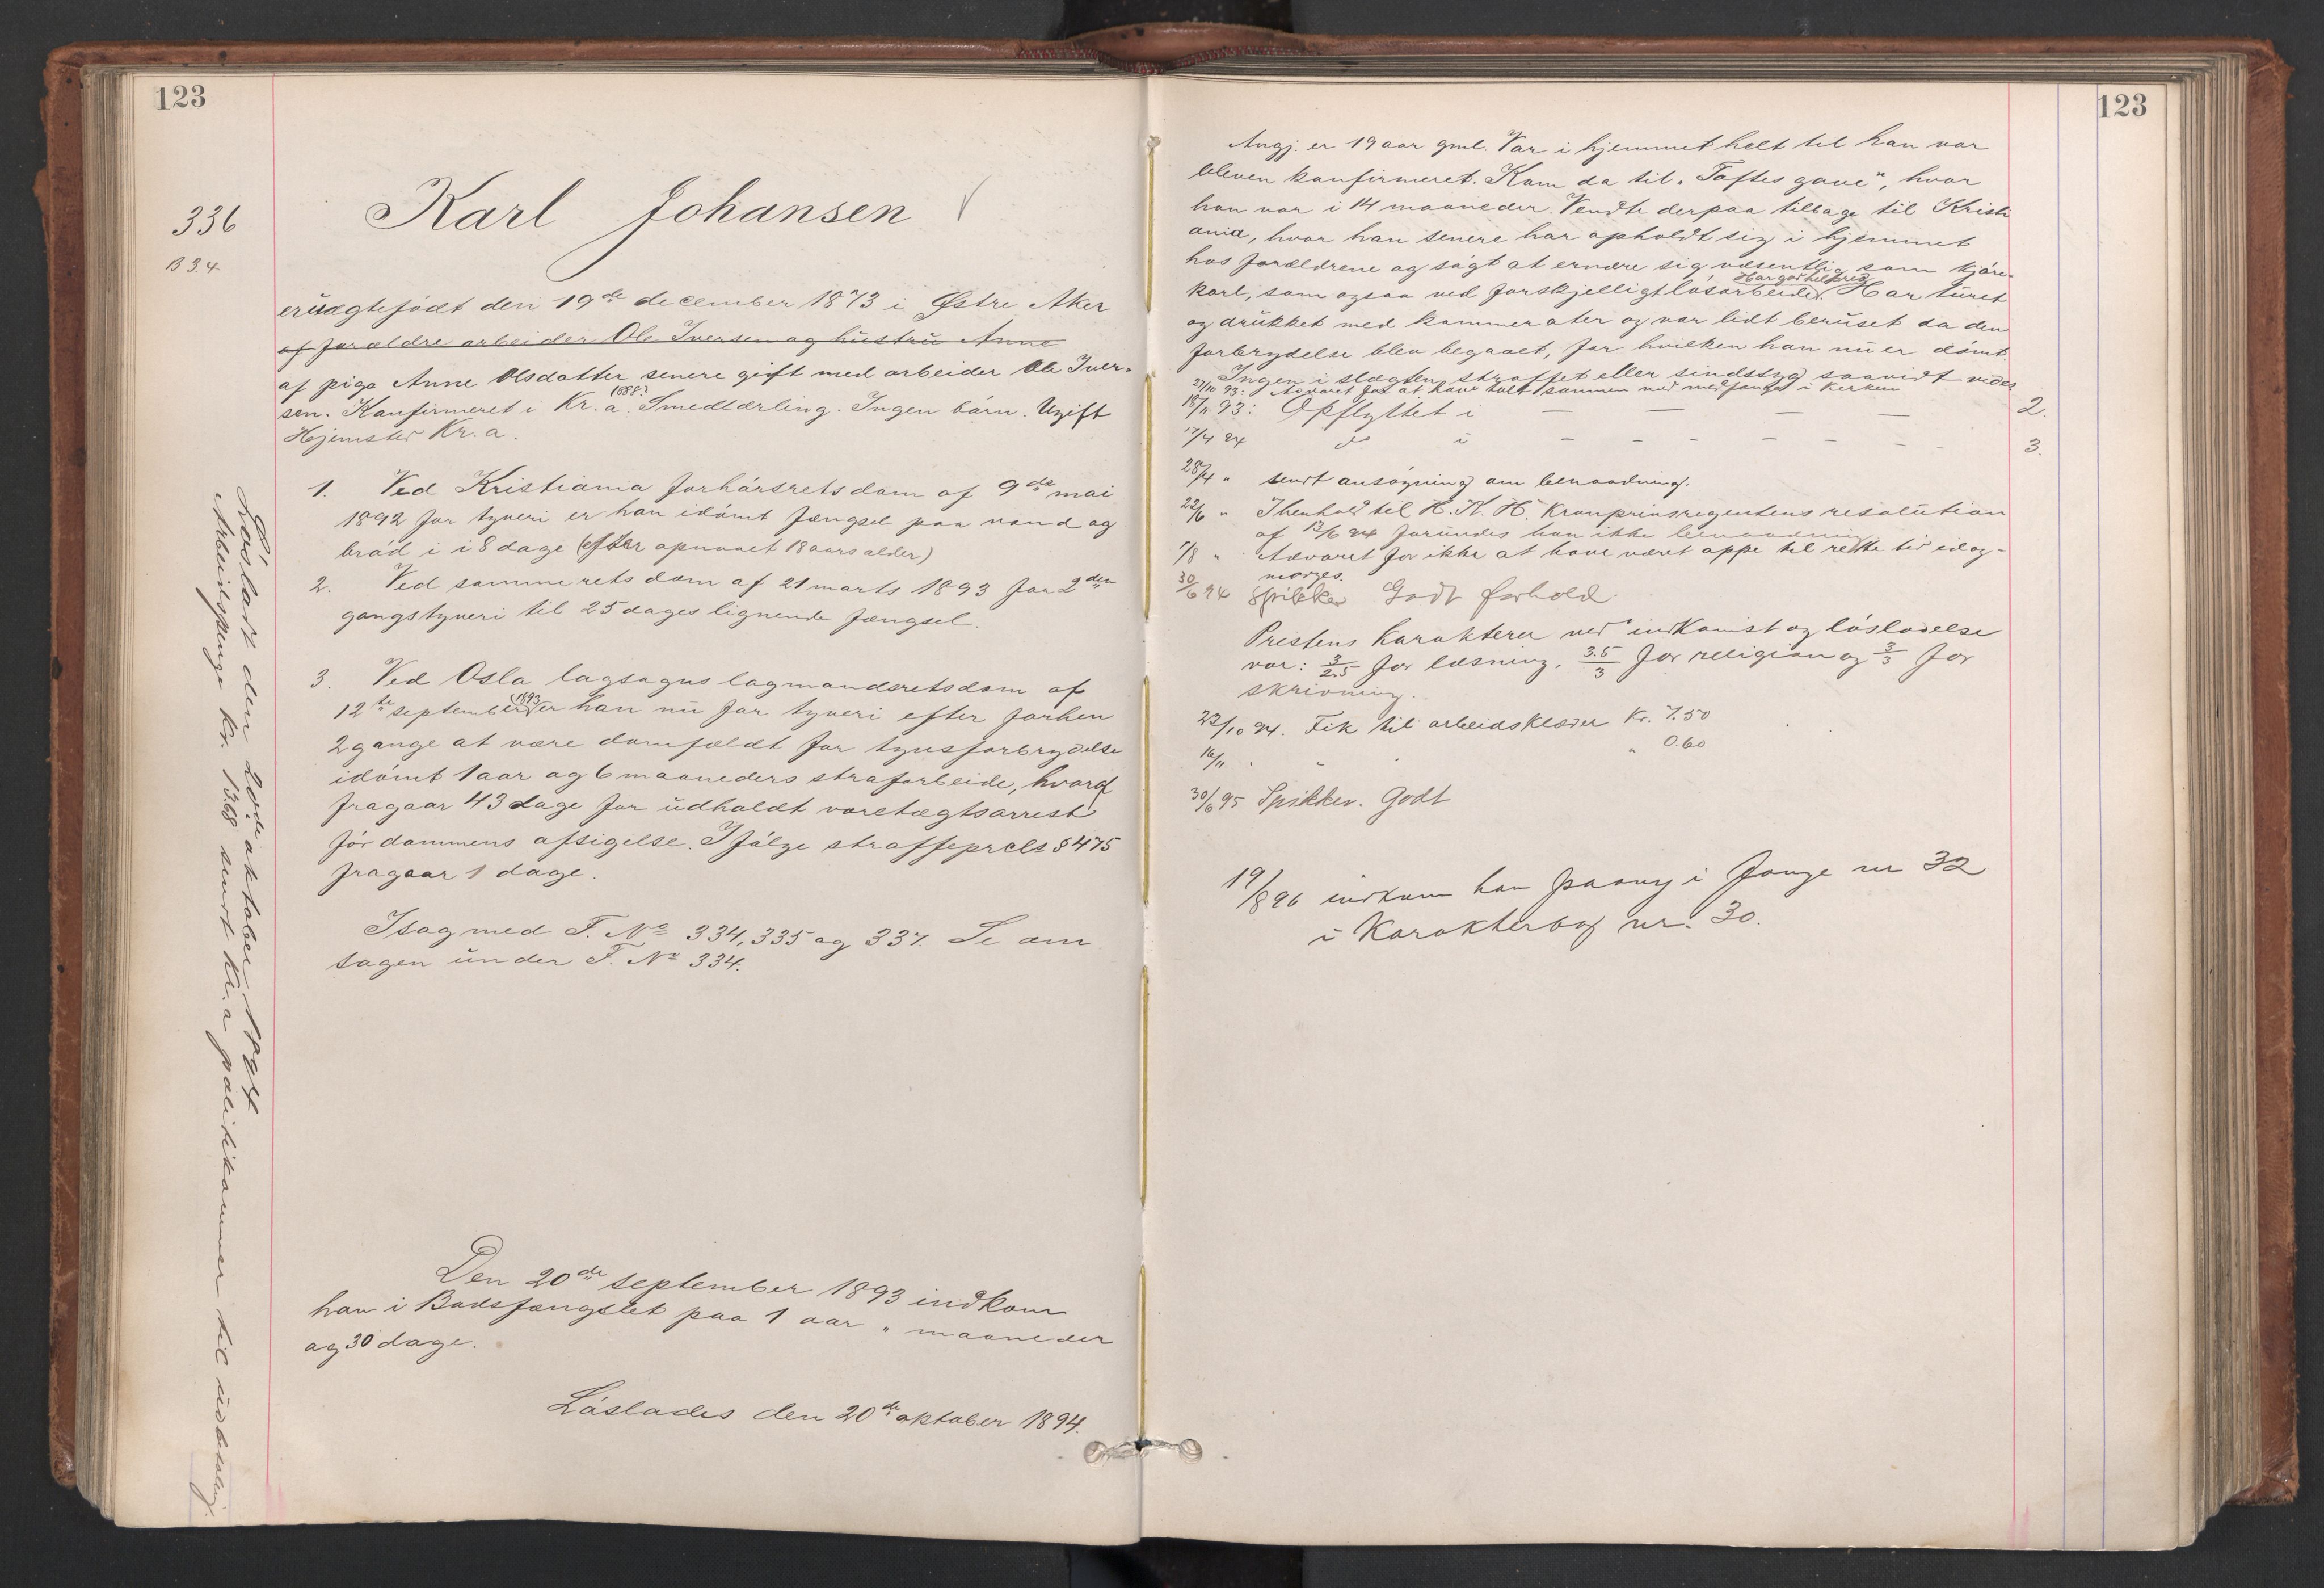 123
336
B 3.4
Karl Johansen
er uægtefödt den 19de december 1873 i Østre Aker
af forældre arbeider Ole Iversen og hustru Anne
af pige Anne Olsdatter senere gift med arbeider Ole Iver-
sen. Konfirmeret i Kr.a. 1888. Smedlærling. Ingen börn. Ugift
Hjemsted Kr.a.
1. Ved Kristiania forhörsretsdom af 9de mai
1892 for tyveri er han idömt fængsel paa vand og
bröd i 8 dage (efter opnaaet 18 aars alder)
2. Ved samme rets dom af 21 marts 1893 for 2den
gangs tyveri til 25 dages lignende fængsel.
3. Ved Oslo lagsogns lagmandsretsdom af
12te september 1893 er han nu for tyveri efter forhen
2 gange at være domfældt for tyvsforbrydelse
idömt 1 aar og 6 maaneders strafarbeide, hvoraf
fragaar 43 dage for udholdt varetægtsarrest
för dommens afsigelse. Ifölge straffeprcls § 475
fragaar 1 dage.
I sag med F. No 334, 335 og 337. Se om
sagen under F. No 334.
Den 20de september 1893 indkom
han i Bodsfængslet paa 1 aar " maaneder
og 30 dage.
Löslades den 20de oktober 1894.
Lösladt den 20de oktober 1894
Arbeidspenge kr. 13.68 sendt Kr.a politikammer til udbetaling.
123
Angj. er 19 aar gml. Var i hjemmet helt til han var
bleven konfirmeret. Kom da til "Toftes gave", hvor
han var i 14 maaneder. Vendte derpaa tilbage til Kristi
ania, hvor han senere har opholdt sig i hjemmet
hos forældrene og sögt at ernære sig væsentlig som kjöre-
karl, som ogsaa ved forskjelligt lösarbeide. Har god helbred. Har turet
og drukket med kammerater og var lidt beruset da den
forbrydelse blev begaaet, for hvilken han nu er dömt.
Ingen i slægten straffet eller sindssyg saavidt vides
27/10 93: Advaret for at have talt sammen med medfange i kirken
18/11 93: Opflyttet i — — — — 2.
17/4 94 do i - - - - - - 3.
28/4 " sendt ansögning om benaadning.
22/6 " I henhold til H. K. H. Kronprinsregentens resolution
af 13/6 94 forundes han ikke benaadning
1/8 " Advaret for ikke at have været oppe til rette tid idag-
morges.
30/6 94 Spikker Godt forhold.
Prestens karakterer ved indkomst og lösladelse
var: 3/2.5 for læsning, 3.5/3 for religion og 3/3 for
skrivning.
23/10 94. Fik til arbeidsklæder Kr. 7.50
16/11 " " " " 0.60
30/6 95 Spikker. Godt
19/8 96 indkom han paany i fange nr 32
i Karakterbog nr. 30.